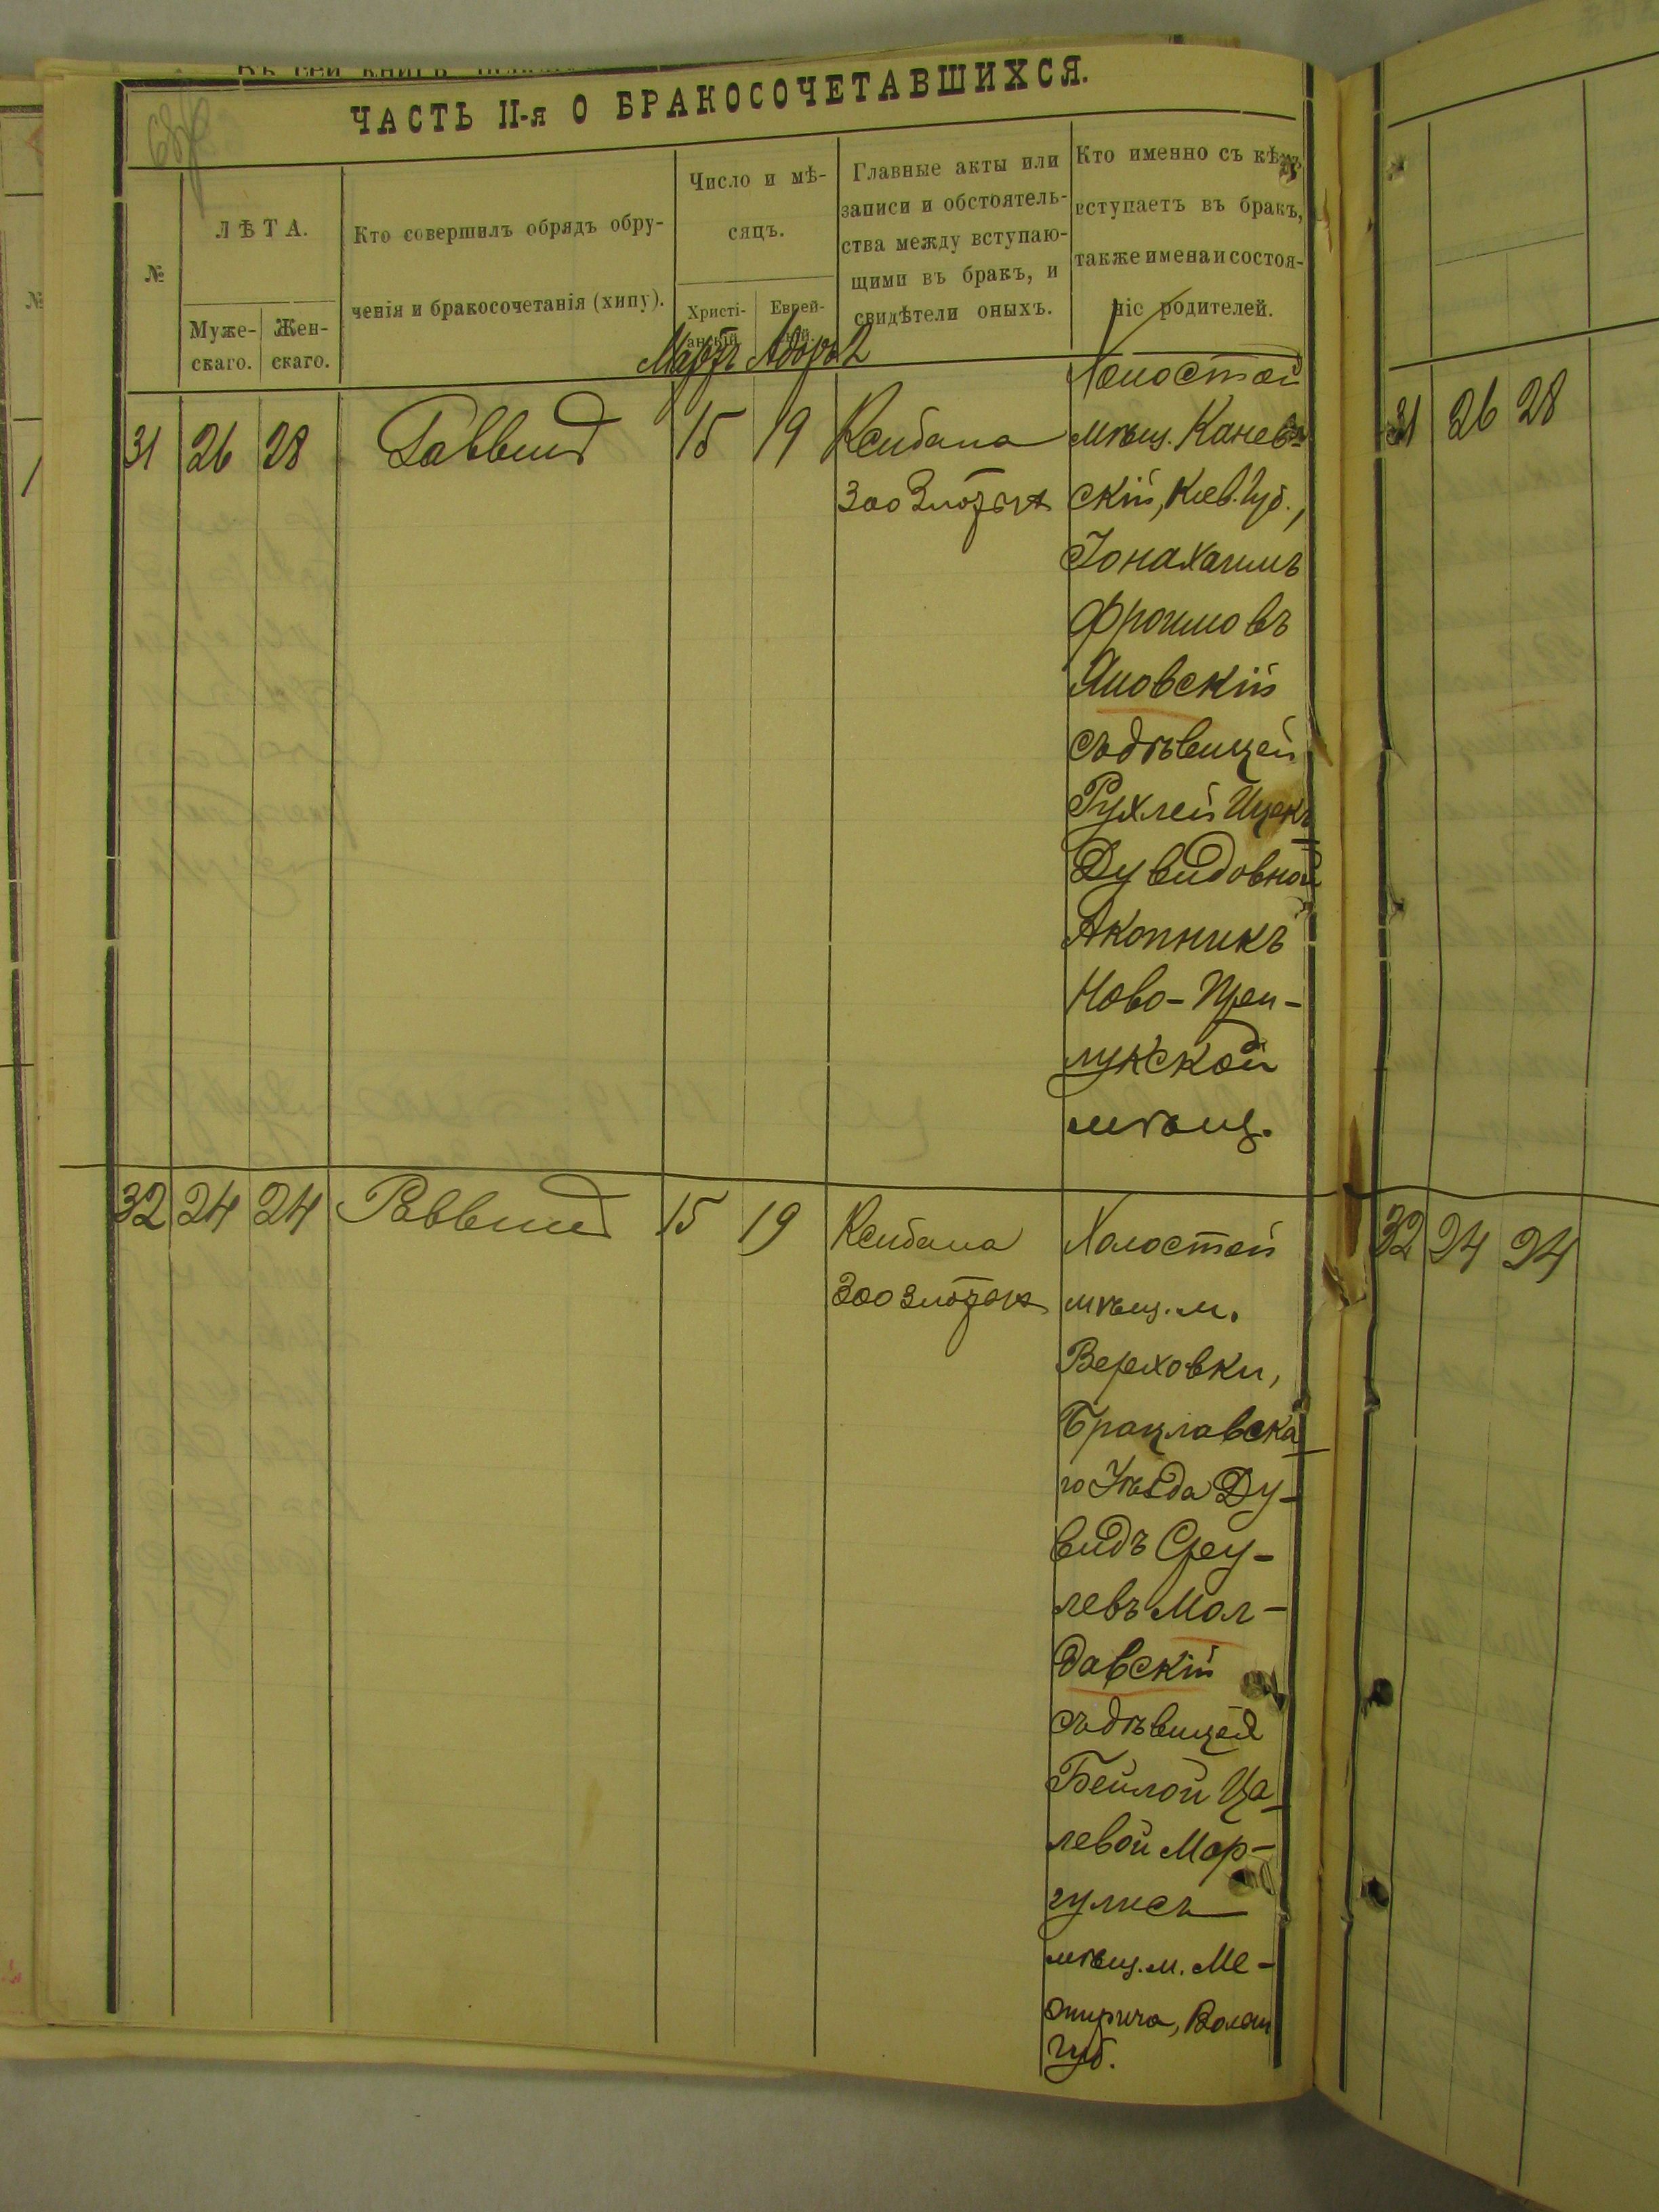 ЧАСТЬ II-я О БРАКОСОЧЕТАВШИХСЯ.
№
ЛѢТА.
Муже-
скаго.
Жен-
скаго.
Кто совершилъ обрядъ обру-
ченія и бракосочетанія (хипу).
Число и мѣ-
сяцъ.
Христі-
анскій.
Еврей-
скій.
Мартъ Адоръ 2
Главные акты или
записи и обстоятель-
ства между вступаю-
щими въ бракъ, и
свидѣтели оныхъ.
Кто именно съ кѣмъ
вступаетъ въ бракъ,
также имена и состоя-
ніе родителей.
31 26 28 Раввинъ 15 19
Ксибана
300 злотъхъ
Холостой
мѣщ. Канев-
скій, Кіев. Губ.,
Іонахаимъ
Фроимовъ
Яновскій
съ дѣвицей
Рухлей Ицекъ
Дувидовной
Акопникъ
Ново-При-
лукской
мѣщ.
32 24 24 Раввинъ 15 19
Ксибана
200 злотъхъ
Холостой
мѣщ. м.
Верховки,
Брацлавска
го Уѣзда Ду-
видъ Сру-
левъ Мол-
давскій
съ дѣвицей
Бейлой Ца-
левой Мар-
гулисъ
мѣщ. м. Ме-
жирича, Волын
Губ.
31 26 28
32 24 24